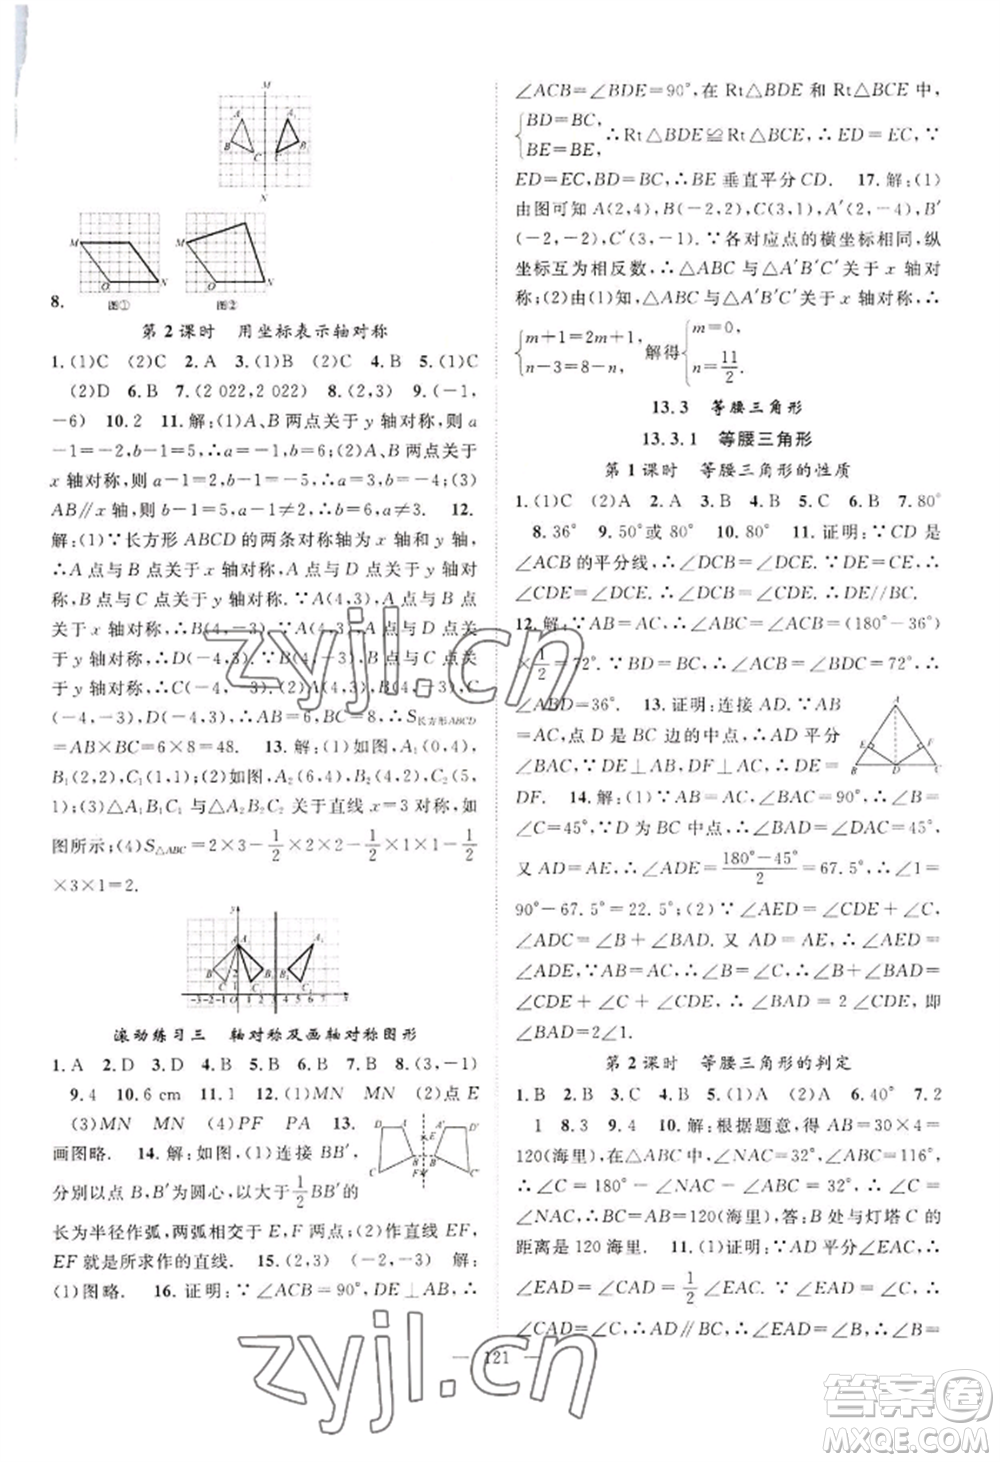 8.
图①
图②
第 2 课时　用坐标表示轴对称
1.(1)C　(2)C　2.A　3.(1)B　(2)C　4.B　5.(1)C
(2)D　6.B　7.(2 022,2 022)　8.(2,3)　9.(-1,
-6)　10.2　11.解:(1)A,B 两点关于 y 轴对称,则
a-1=-2,b-1=5,∴a=-1,b=6;(2)A,B 两点关于
x 轴对称,则 a-1=2,b-1=-5,∴a=3,b=-4;(3)
AB∥x 轴,则 b-1=5,a-1≠2,∴a≠3,b=6.　12.
解:(1)∵长方形 ABCD 的两条对称轴为坐标轴,
∴A 点与 B 点关于 x 轴对称,A 点与 D 点关于 y 轴对
称,B 点与 C 点关于 y 轴对称.∵A(4,3),A 点与 B 点
关于 x 轴对称,∴B(4,-3).∵A(4,3),A 点与 D 点关
于 y 轴对称,∴D(-4,3).∵B(4,-3),B 点与 C 点关
于 y 轴对称,∴C(-4,-3);(2)∵A(4,3),B(4,-3),
C(-4,-3),∴AB=6,BC=8,∴S长方形ABCD
=AB×BC=6×8=48.　13.解:(1)如图,A₁(0,4),
B₁(2,2),C₁(1,1);(2)如图,A₂(6,4),B₂(4,2),C₂(5,
1);(3)△A₁B₁C₁ 与△A₂B₂C₂ 关于直线 x=3 对称,如
图所示;(4)S△ABC=2×3-1/2×2×2-1/2×1×1-1/2
×3×1=2.
滚动练习三　轴对称及画轴对称图形
1.A　2.D　3.D　4.B　5.B　6.B　7.B　8.(3,-1)
9.4　10.6 cm　11.(1)MN　MN　(2)点 E
(3)MN　MN　(4)PF　PA　13.
画图略.　14.解:(1)连接 BB′,
分别以点 B,B′为圆心,以大于1/2BB′的
长为半径作弧,两弧相交于 E,F 两点;(2)作直线 EF,
EF 就是所求作的直线.　15.(2,3)　(-2,-3)　解:
(1)图略.　16.证明:∵∠ACB=90°,DE⊥AB,∴
∠ACB=∠BDE=90°,在 Rt△BDE 和 Rt△BCE 中,
BD=BC,
BE=BE,
∴Rt△BDE≌Rt△BCE,∴ED=EC,∵
ED=EC,BD=BC,∴BE 垂直平分 CD.　17.解:(1)
由图可知 A(2,4),B(-2,2),C(3,1),A′(2,-4),B′
(-2,-2),C′(3,-1).∵各对应点的横坐标相同,纵
坐标互为相反数,∴△ABC 与△A′B′C′关于 x 轴对
称;(2)由(1)知,△ABC 与△A′B′C′关于 x 轴对称,∴
m+1=1,
n-3=8-n,
解得
m=0,
n=11/2.
13.3　等腰三角形
13.3.1　等腰三角形
第 1 课时　等腰三角形的性质
1.(1)C　(2)A　2.A　3.B　4.B　5.C　6.B　7.80°
8.36°　9.50°或 80°　10.80°　11.证明:∵CD 是
∠ACB 的平分线,∴∠DCB=∠DCE.∵DE=CE,∴
∠CDE=∠DCE.∴∠CDE=∠DCB.∴DE//BC.
12.解:∵AB=AC,∴∠ABC=∠ACB=(180°-36°)
×1/2=72°.∵BD=BC,∴∠ACB=∠BDC=72°,∴
∠ABD=36°.　13.证明:连接 AD,∵AB=
AC,∵点 D 是 BC 边的中点,∴AD 平分
∠BAC,∵DE⊥AB,DF⊥AC,∴DE=
DF.　14.解:(1)∵AB=AC,∠BAC=90°,∴∠B=
∠C=45°.∵D 为 BC 中点,∴∠BAD=∠DAC=45°.
又 AD=AE,∴∠ADE=(180°-45°)/2=67.5°.∴∠2=
90°-67.5°=22.5°;(2)∵∠AED=∠CDE+∠C,∴
∠ADC=∠ADE+∠CDE.　又 AD=AE,∴∠AED=
∠ADE.∴∠ADC=∠AED+∠CDE=2∠CDE+
∠C.又∠ADC=∠B+∠BAD,∴∠BAD=2∠CDE,即
∠BAD=2∠1.
第 2 课时　等腰三角形的判定
1.B　2.B　3.C　4.B　5.(1)A　(2)A　6.40°　7.2
1　8.3　9.4　10.解:根据题意,得 AB=30×4=
120(海里),在△ABC 中,∠NAC=32°,∠ABC=116°,
∴∠C=180°-∠NAC-∠ABC=32°,∴∠C=
∠NAC,∴BC=AB=120(海里),答:B 处与灯塔 C 的
距离是 120 海里.　11.(1)证明:∵AD 平分∠CAE,∴
∠EAD=∠CAD=1/2∠EAC.∵∠EAD=∠B,∴
∠CAD=∠C,∴AD∥BC,∴∠EAD=∠B=∠CAD
121
zyjl.cn
zyjl.cn
答案圈
MXQE.COM